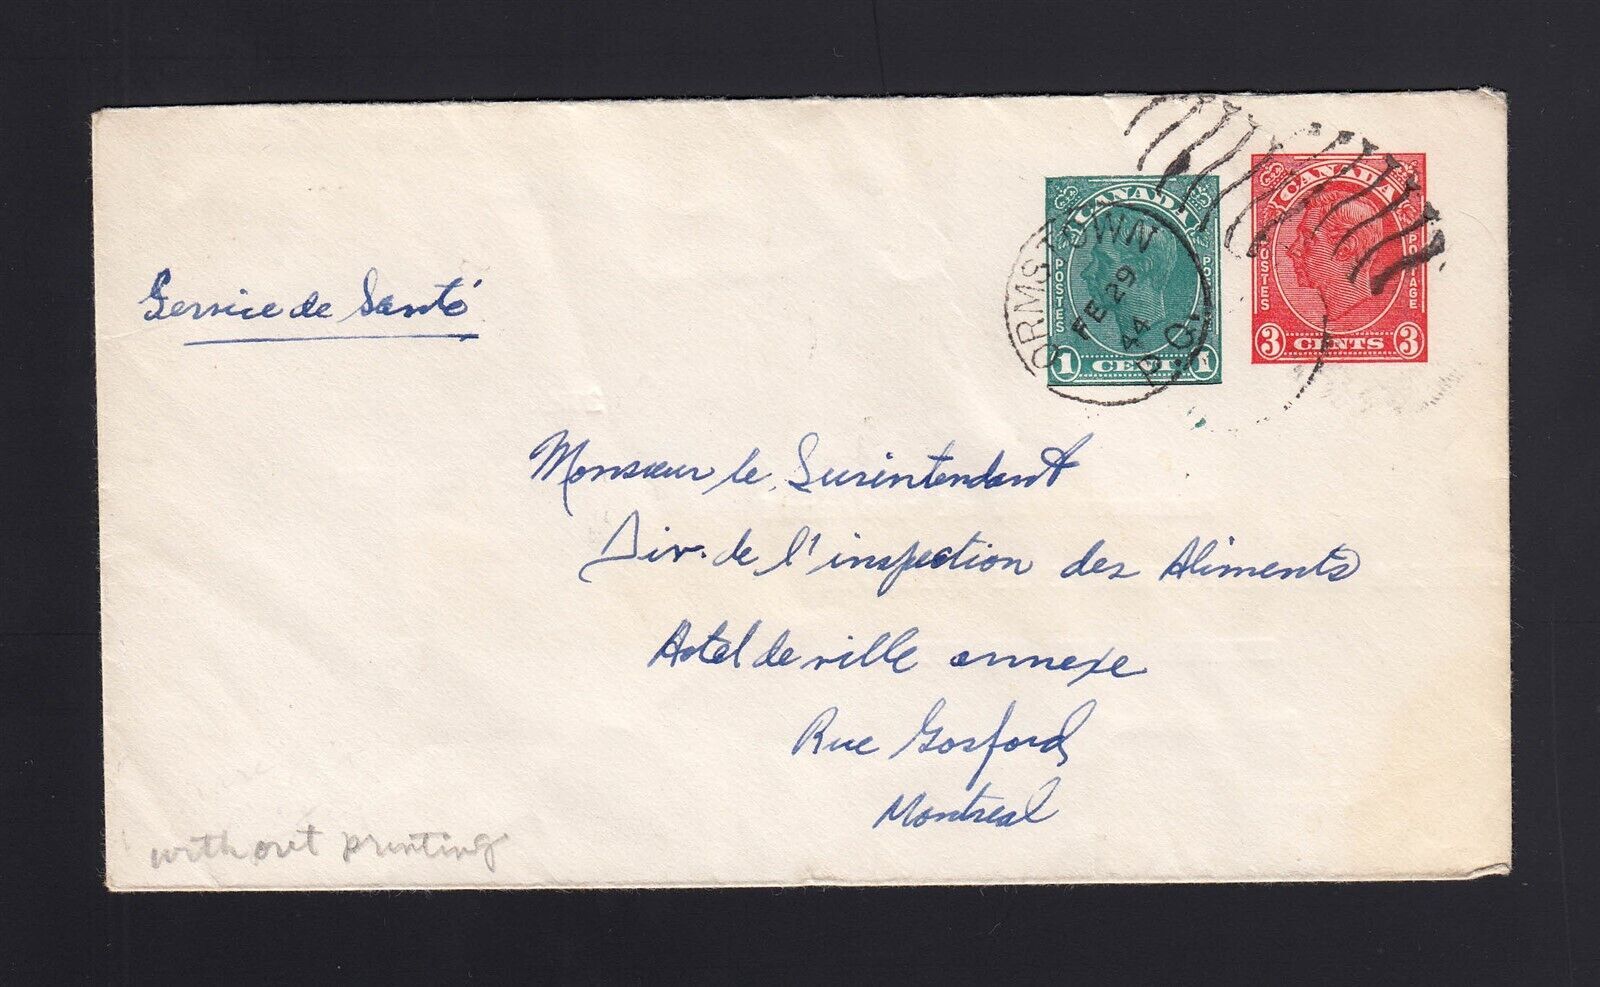 Service de Santé
CANADA
POSTES
PO
1 CENT 1
CANADA
POSTES
POSTAGE
3 CENTS 3
ORMSTOWN
FE 29
44
P.Q.
Monsieur le Surintendant
Div. de l'inspection des Aliments
Hotel de ville annexe
Rue Gosford
Montreal
without printing